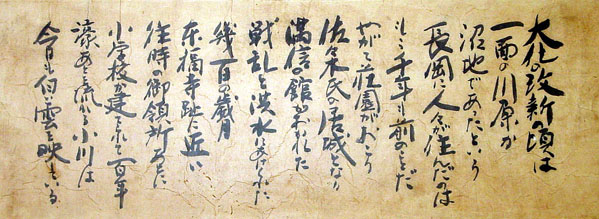 大化の改新の頃は
一面の川原か
沼地であったという
長岡に人々が住んだのは
もう千年も前のことだ
やがて荘園がおこり
佐々木氏の居城となり
満信の館がおかれた
戦乱と洪水にあけくれた
幾百の歳月
東福寺趾に近い
往時の御領所あとに
小学校が建てられて百年
濠あとを流れる小川は
今日も白い雲を映している